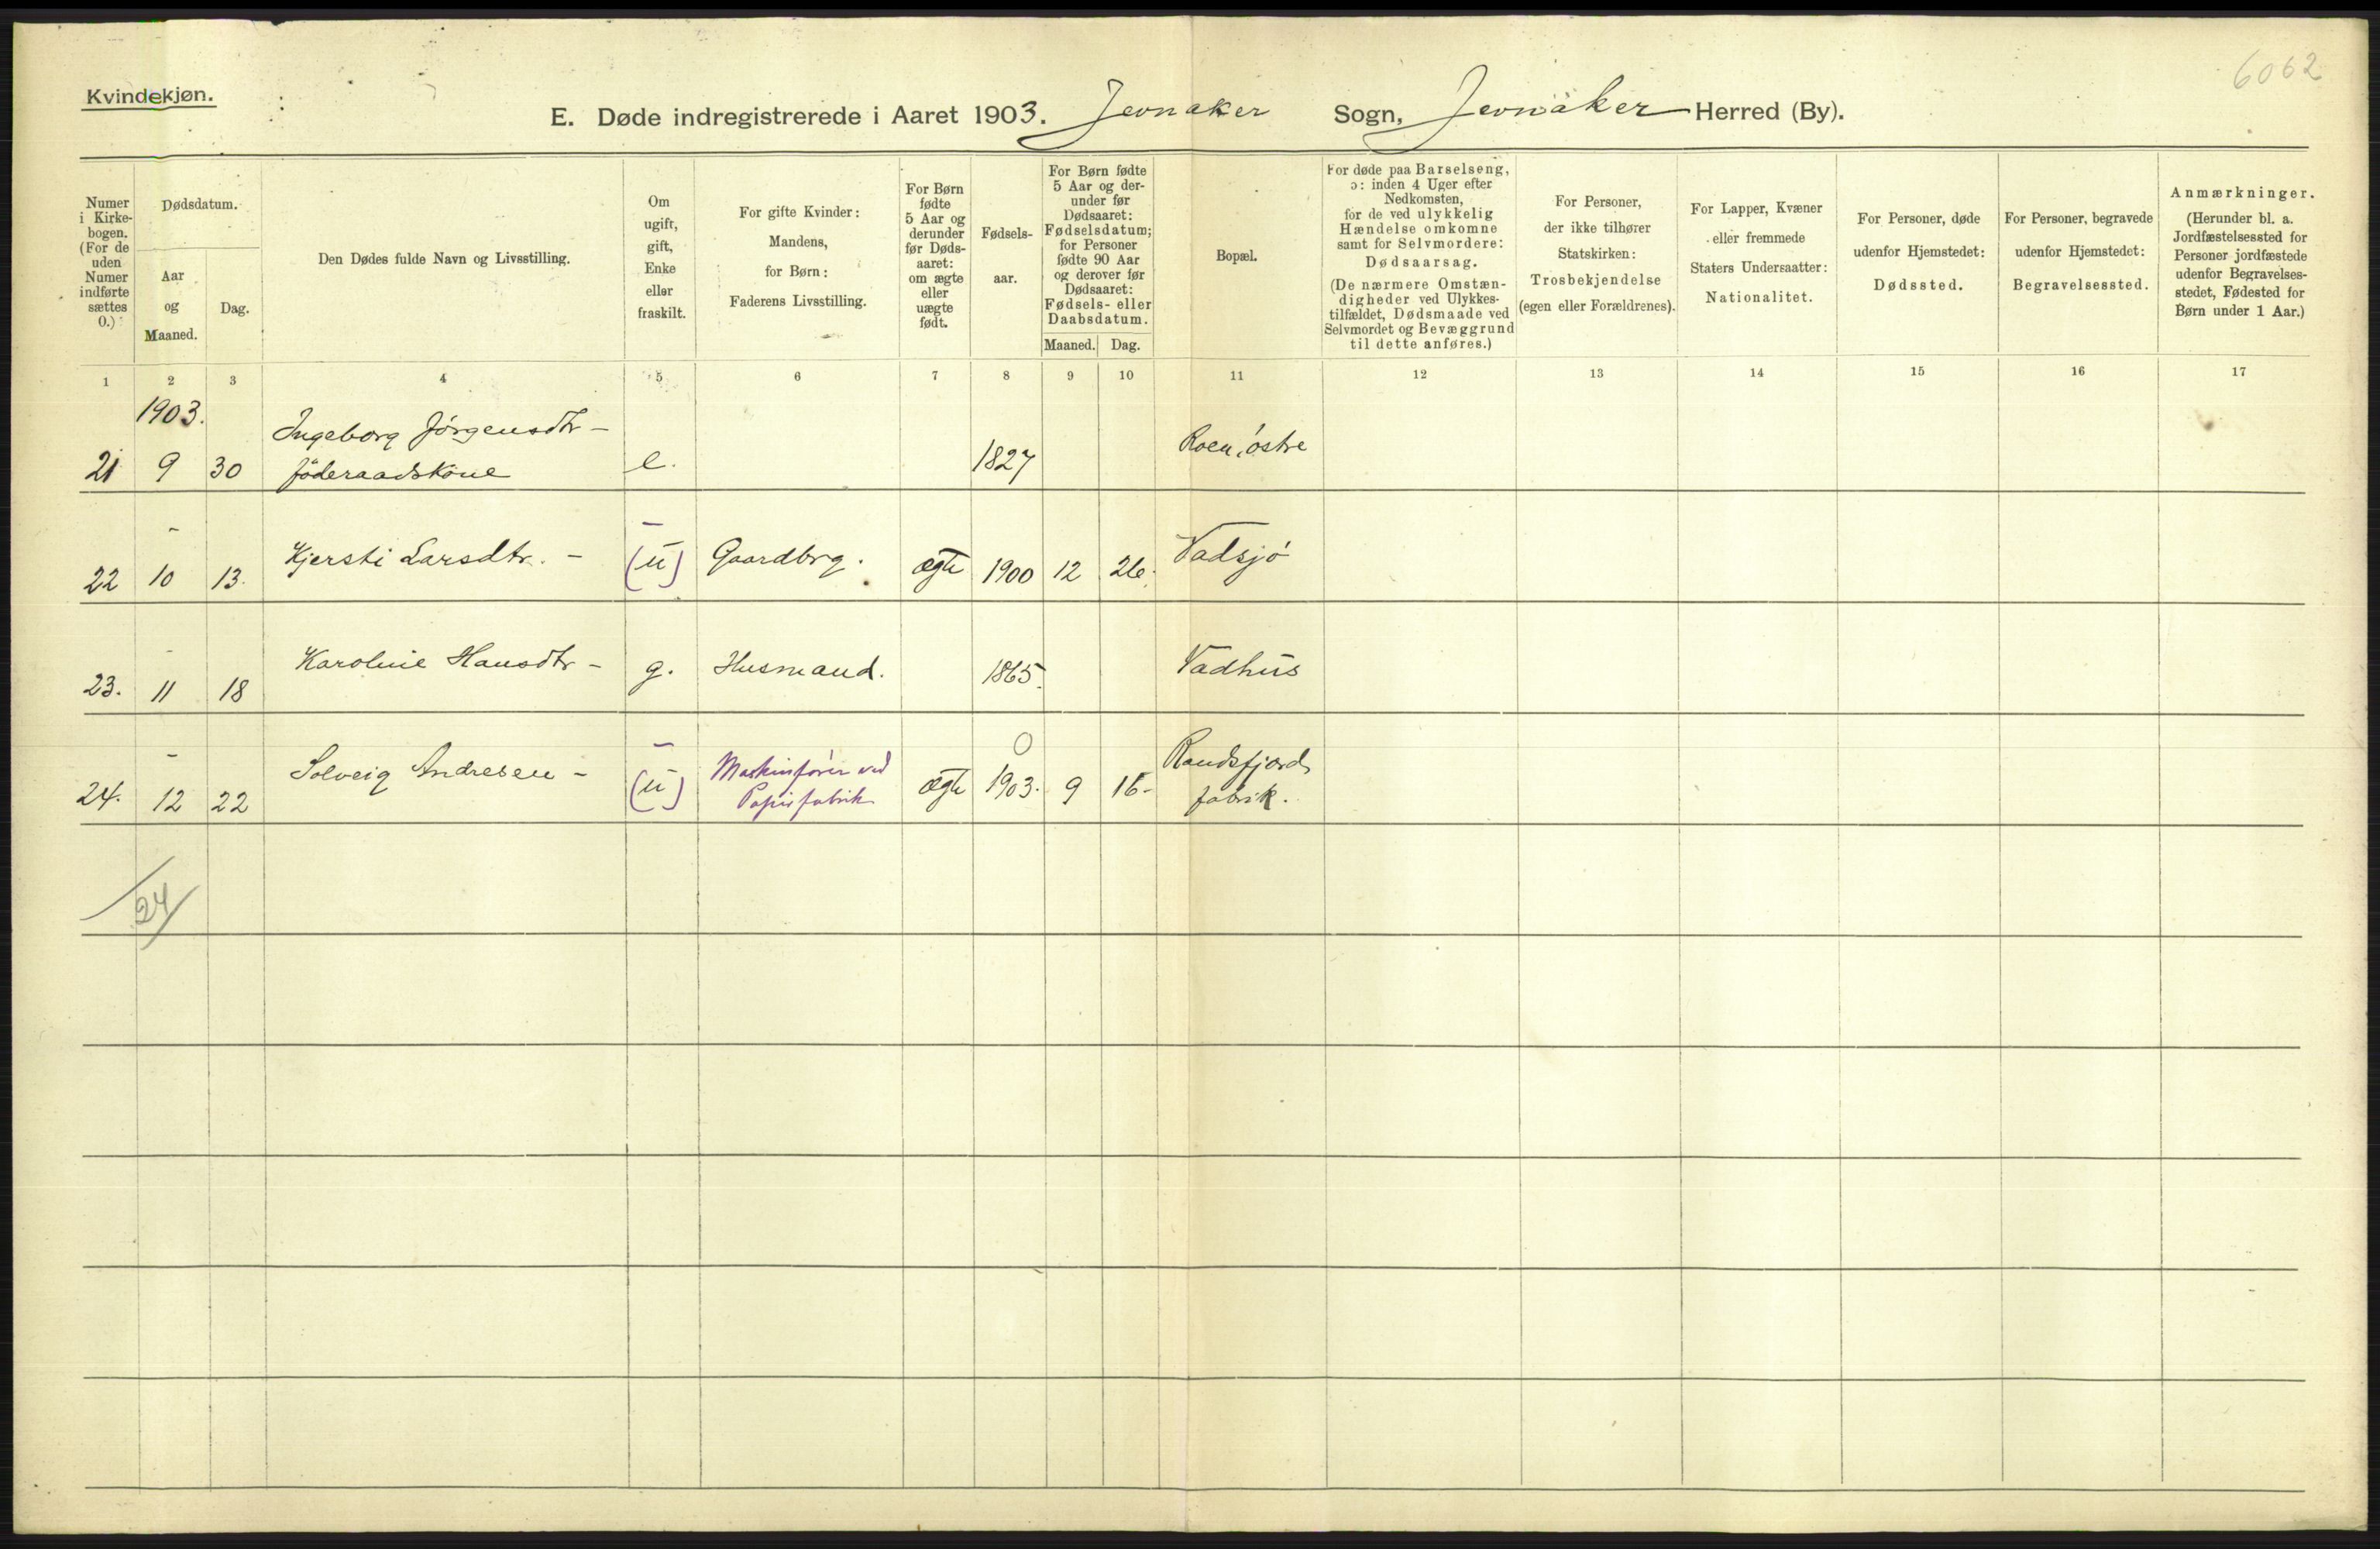 6062
Kvindekjøn.
E. Døde indregistrerede i Aaret 1903. Jevnaker Sogn, Jevnaker Herred (By).
Numer i Kirkebogen. (For de uden Numer indførte sættes 0.)
Dødsdatum.
Aar og Maaned.
Dag.
Den Dødes fulde Navn og Livsstilling.
Om ugift, gift, Enke eller fraskilt.
For gifte Kvinder: Mandens, for Børn: Faderens Livsstilling.
For Børn fødte 5 Aar og derunder før Dødsaaret: om ægte eller uægte født.
Fødselsaar.
For Børn fødte 5 Aar og derunder før Dødsaaret: Fødselsdatum; for Personer fødte 90 Aar og derover før Dødsaaret: Fødsels- eller Daabsdatum.
Maaned. Dag.
Bopæl.
For døde paa Barselseng, ɔ: inden 4 Uger efter Nedkomsten, for de ved ulykkelig Hændelse omkomne samt for Selvmordere: Dødsaarsag. (De nærmere Omstændigheder ved Ulykkestilfældet, Dødsmaade ved Selvmordet og Bevæggrund til dette anføres.)
For Personer, der ikke tilhører Statskirken: Trosbekjendelse (egen eller Forældrenes).
For Lapper, Kvæner eller fremmede Staters Undersaatter: Nationalitet.
For Personer, døde udenfor Hjemstedet: Dødssted.
For Personer, begravede udenfor Hjemstedet: Begravelsessted.
Anmærkninger. (Herunder bl. a. Jordfæstelsessted for Personer jordfæstede udenfor Begravelsesstedet, Fødested for Børn under 1 Aar.)
1 2 3 4 5 6 7 8 9 10 11 12 13 14 15 16 17
1903.
21 9 30 Ingeborg Jörgensdtr - föderaadskone e. 1827 Roen, östre
-
22 10 13. Kjersti Larsdtr. - (u) Gaardbrg. ægte 1900 12 26. Vadsjö
-
23. 11 18 Karoline Hansdtr - g. Husmand. 1865. Vadhus
-
24. 12 22 Solveig Andresen - (u) Maskinfører ved Papirfabrik ægte 0 1903. 9 15- Randsfjord fabrik.
24